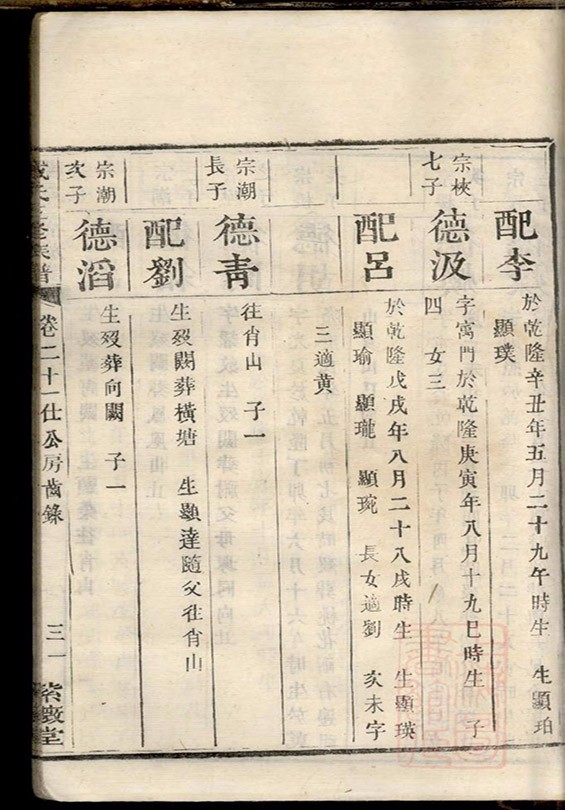 配李
於乾隆辛丑年五月二十九午時生 生顯珀
顯璞
宗梜
七子
德汲
字寓門於乾隆庚寅年八月十九巳時生 子
四 女三
配呂
於乾隆戊戌年八月二十八戌時生 生顯瑛
顯瑜 顯瓏 顯琬 長女適劉 次未字
三適黄
宗潮
長子
德青
往肖山 子一
配劉
生歿闕葬橫塘 生顯達隨父往肖山
宗潮
次子
德滔
生歿葬向闕 子一
氏 修族譜
卷二十一仕公房齒錄
三一
紫 堂